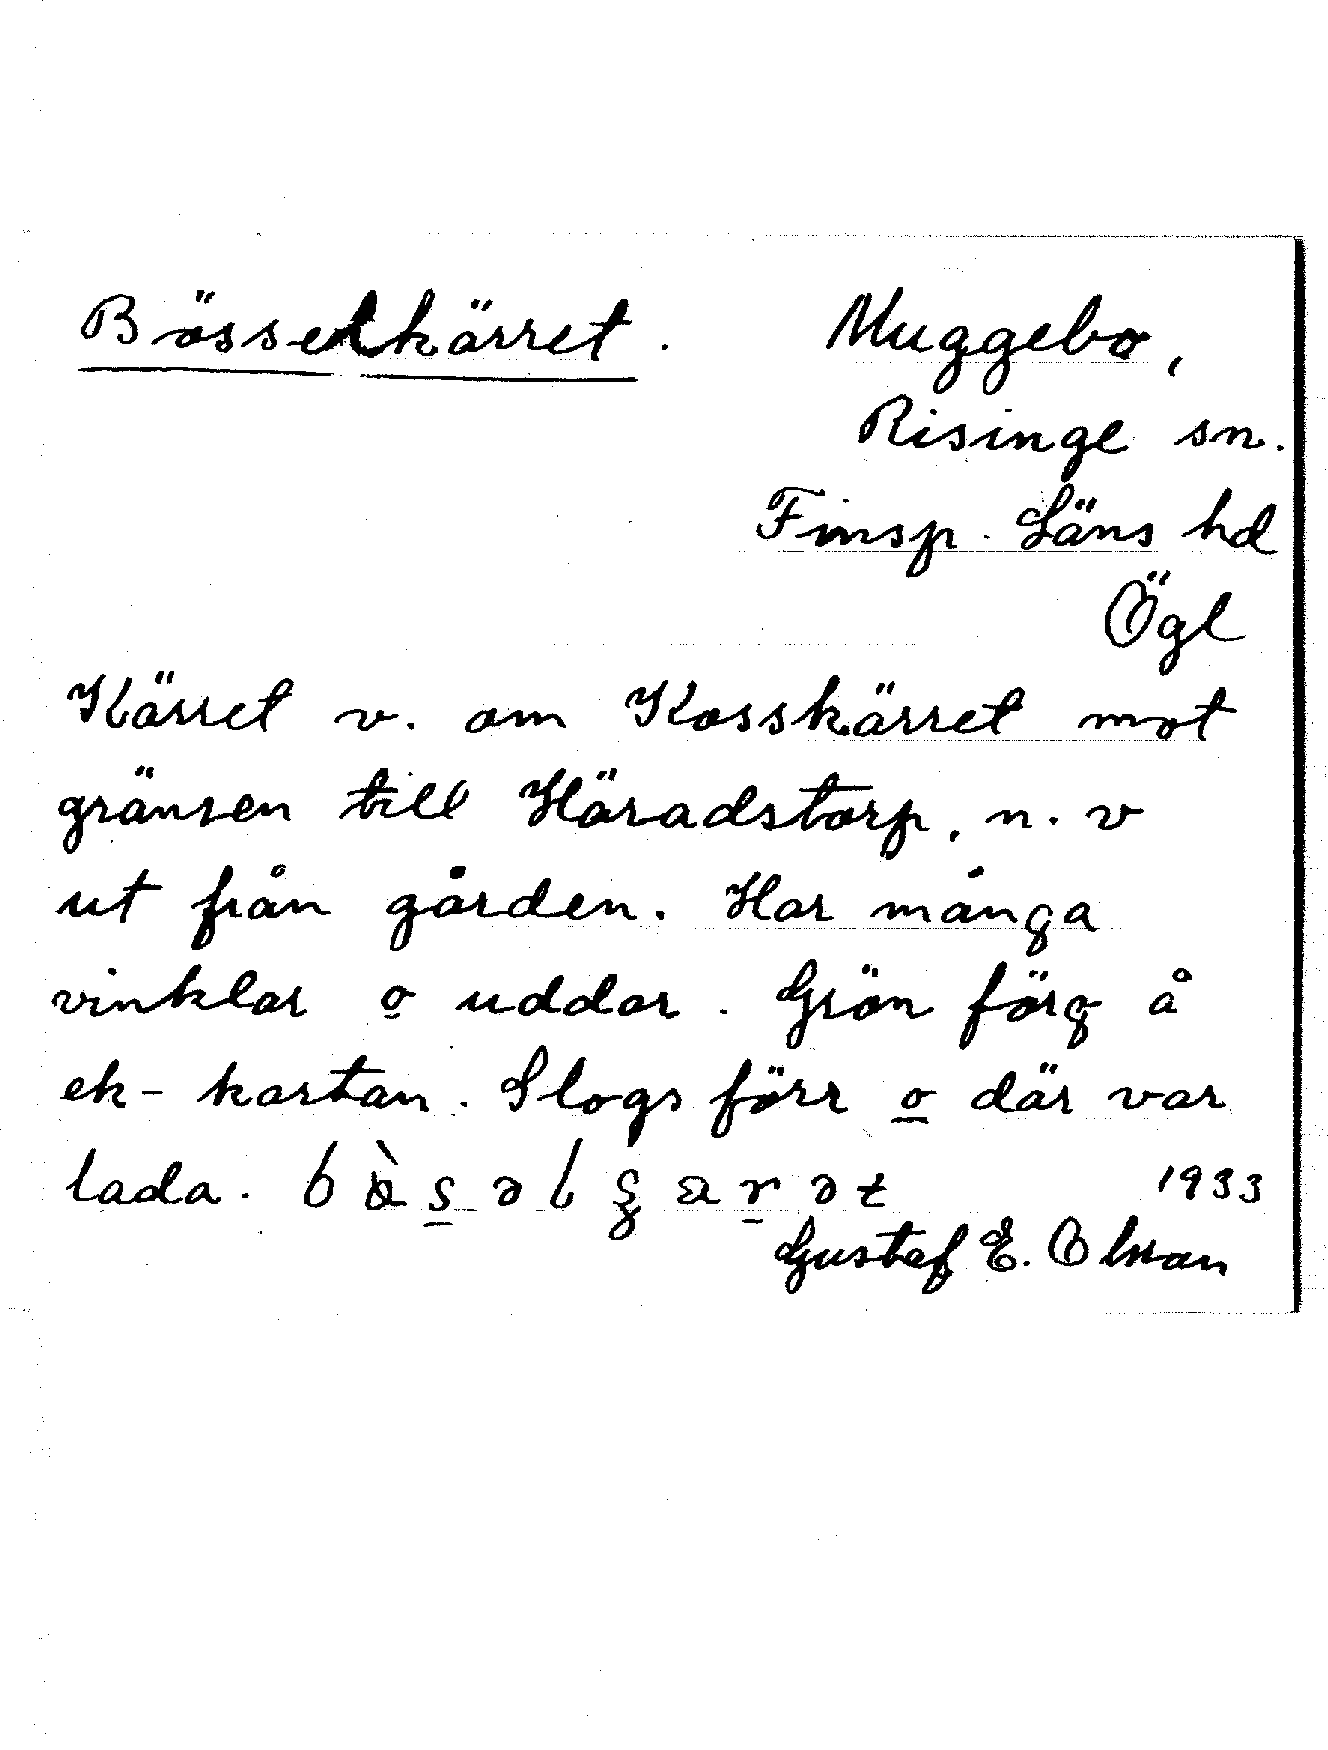 Bösselkärret. Muggebo,
Risinge sn.
Finsp. Läns hd
Ögl
Kärret v. om Kosskärret mot
gränsen till Häradstorp, n. v
ut från gården. Har många
vinklar o uddar. Grön färg å
ek-kartan. Slogs förr o där var
lada. 1933
Gustaf E. Olsson